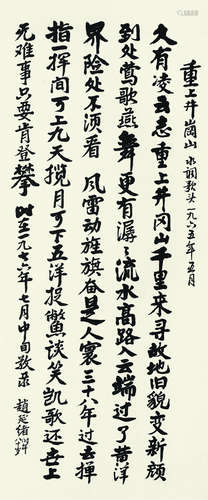 重上井岗山 水调歌头 一九六五年五月
久有凌云志重上井冈山千里来寻故地旧貌变新颜
到处莺歌燕舞更有潺々流水高路入云端过了黄洋
界险处不须看 风雷动旌旗奋是人寰三十八年过去弹
指一挥间可上九天揽月可下五洋捉鳖谈笑凯歌还世上
无难事只要肯登攀 时在一九七六年七月中旬敬录 赵延绪